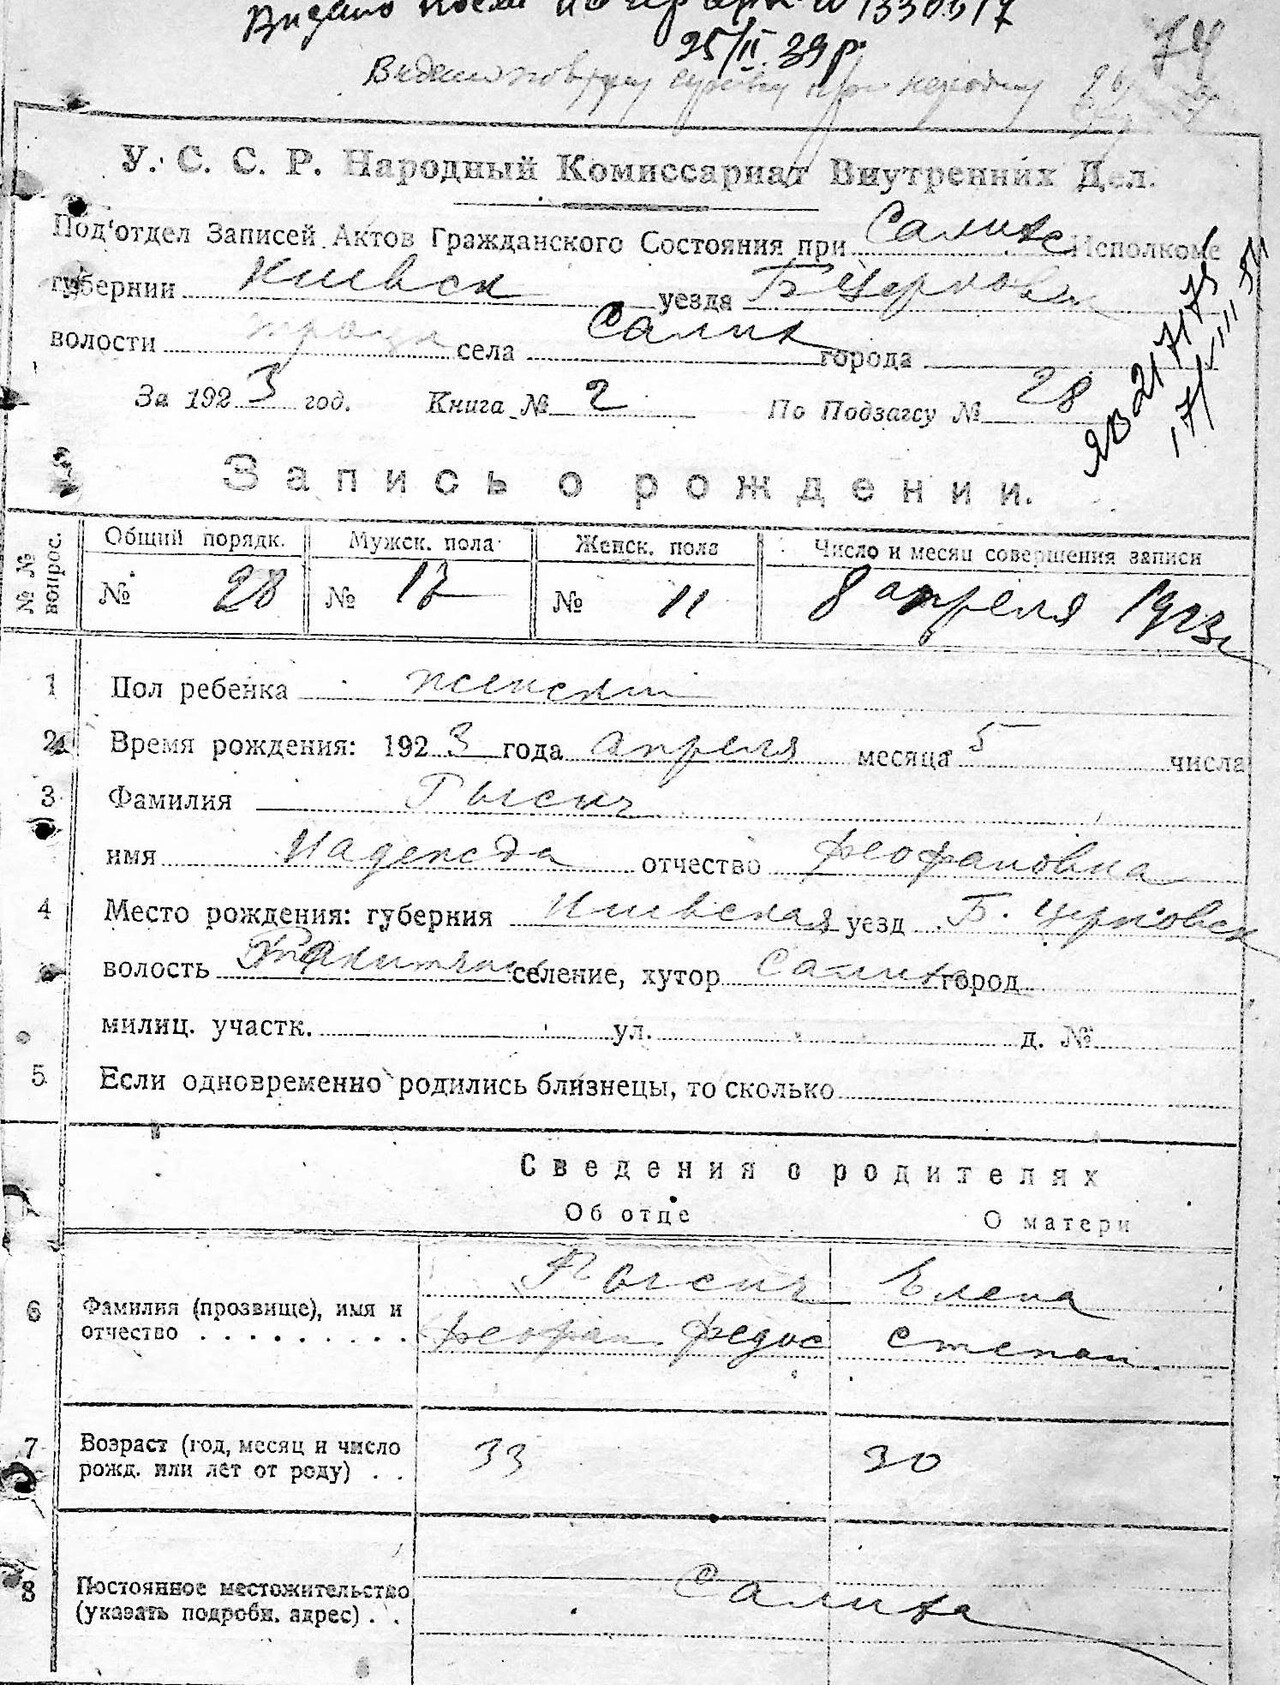 Видано
25/II 39 р.
74
У. С. С. Р. Народный Комиссариат Внутренних Дел.
Под'отдел Записей Актов Гражданского Состояния при Салихс Исполкоме
губернии Киевск уезда Б Церковск
волости села Салиха города
За 1923 год. Книга № 2 По Подзагсу № 28
Запись о рождении.
№ № вопрос.
Общий порядк. Мужск. пола Женск. пола Число и месяц совершения записи
№ 28 № 17 № 11 8 апреля 1923 г
1 Пол ребенка женский
2 Время рождения: 1923 года апреля месяца 5 числа
3 Фамилия
имя Надежда отчество Феофановна
4 Место рождения: губерния Киевская уезд Б. Церковск
волость селение, хутор Салиха город
милиц. участк. ул. д. №
5 Если одновременно родились близнецы, то сколько
Сведения о родителях
Об отце О матери
6 Фамилия (прозвище), имя и Елена
отчество Феофан Федос Степан.
7 Возраст (год, месяц и число 33 30
рожд. или лет от роду)
8 Постоянное местожительство Салиха
(указать подробн. адрес)